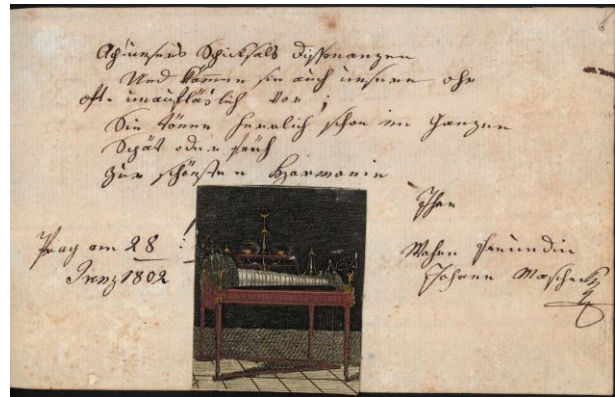 Ach unsers Schicksals Dissonanzen
Und kämen sie auch unserm ohr
oft unauflöslich vor ;
Sie tönen herrlich schon im Ganzen
Spät oder früh
Zur schönsten Harmonie
Ihr
Prag am 28
Wahrer Freund
1802
Johann Maschek